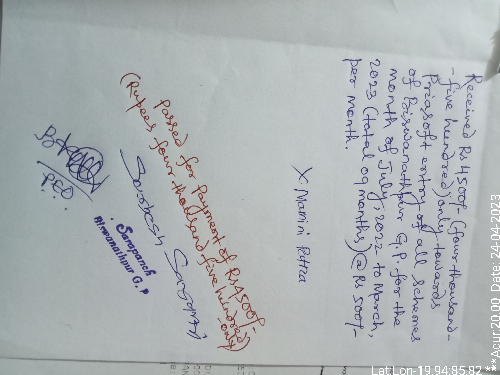 Received Rs 4500/- (four thousand-
- five hundred) only towards
Priasoft entry of all schemes
of Biswanathpur G.P for the
month of July, 2022 to March,
2023 (total 09 months) @ Rs 500/-
per month.
X Mamini Patra
Passed for Payment of Rs 4500/-
(Rupees four thousand five hundred)
only
PEO.
Sarapanch
Biswanathpur G.P
Lat Lon-19.94:85.82 **Acur:20.00 Date: 24-04-2023